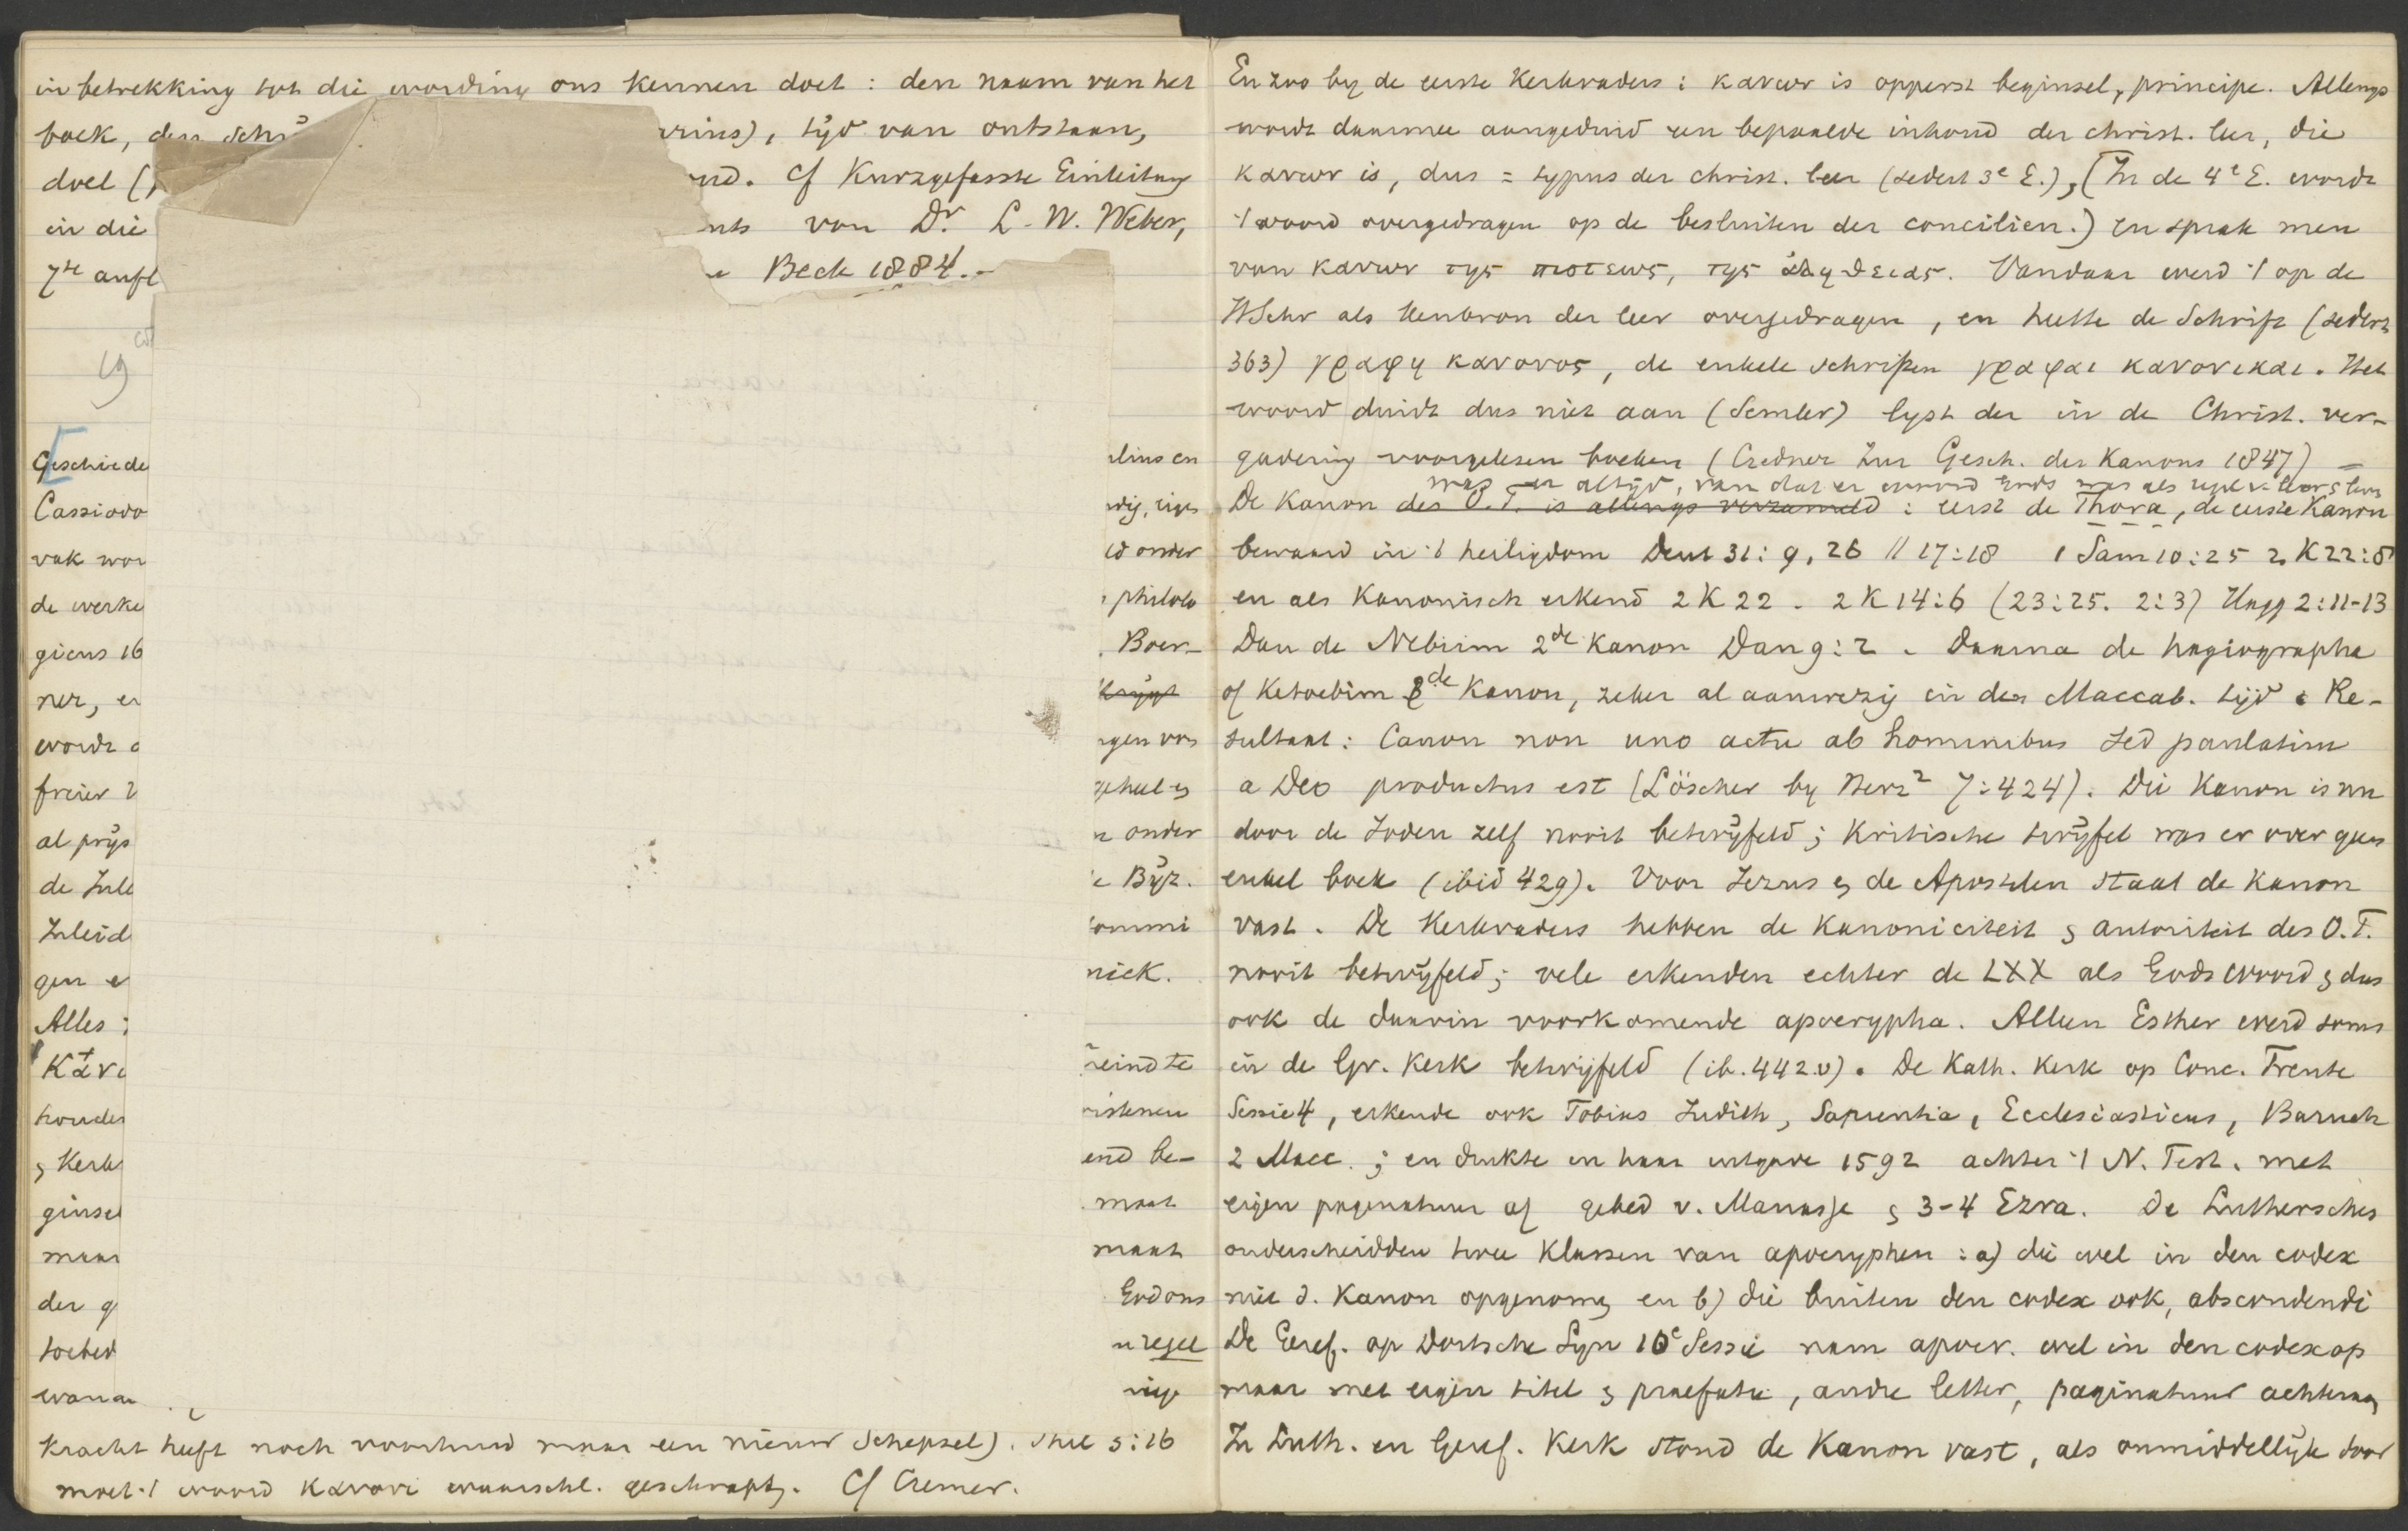 in betrekking tot die wording ons kennen doet : den naam van het
boek, den Schr
tijd van ontstaan,
doel (
Cf Kurzgefasste Einleitung
in die
von Dr. L. W. Weber,
7te aufl
Beck 1884.-
19
Geschiede
Cassiodo
vak wor
onder
de werke
philolo
gicus 16
Boer-
ner, en
wordt
freier
al prijs
onder
de Inle
Bijz.
Inleid
gen
niek.
Alles
Καν
reindte
houden
istenen
& Kerk
end be-
ginsel
maat
maar
maat
der g
God ons
toebed
n regel
kracht heeft noch voorhuid maar een nieuw Schepsel). Phil 3:16
moet 't woord κανονι waarschl. geschrapt. Cf Cremer.
En zoo by de eerste Kerkvaders : κανων is opperst beginsel, principe. Allengs
wordt daarmee aangeduid een bepaalde inhoud der christ. leer, die
κανων is, dus = typus der christ. leer (sedert 3e E.), (In de 4e E. wordt
't woord overgedragen op de besluiten der concilien.) En sprak men
van κανων της πιστεως, της αληθειας. Vandaar werd 't op de
HSchr als kenbron der leer overgedragen, en heette de Schrift (sedert
363) γραφη κανονος, de enkele schriften γραφαι κανονικαι. Het
woord duidt dus niet aan (Semler) lyst der in de Christ. ver-
gadering voorgelezen boeken (Credner Zur Gesch. des Kanons 1847) –
was er altijd, van dat er woord Gods was als regel v. leer & leven
De Kanon des O.T. is allengs verzameld : eerst de Thora, de eerste Kanon
bewaard in 't heiligdom Deut 31:9, 26 // 17:18 1 Sam 10:25 2 K 22:8
en als Kanonisch erkend 2 K 22 . 2 K 14:6 (23:25. 2:3) Hagg 2:11-13
Dan de Nebiim 2de Kanon Dan 9:2 . Daarna de hagiographa
of Ketoebim 3de Kanon, zeker al aanwezig in den Maccab. tijd. Re-
sultaat : Canon non uno actu ab hominibus sed paulatim
a Deo productus est (Löscher by Herz² 7:424). Die Kanon is nu
door de Joden zelf nooit betwijfeld ; Kritische twijfel was er over geen
enkel boek (ibid 429). Voor Jezus & de Apostelen staat de Kanon
vast. De Kerkvaders hebben de Kanoniciteit & autoriteit des O.T.
nooit betwijfeld ; vele erkenden echter de LXX als Gods woord & dus
ook de daarin voorkomende apocrypha. Alleen Esther werd soms
in de Gr. Kerk betwijfeld (ib. 442.v). De Kath. Kerk op Conc. Trente
Sessie 4, erkende ook Tobias Judith, Sapientia, Ecclesiasticus, Baruch
2 Macc. ; en drukte in haar uitgave 1592 achter 't N. Test. met
eigen paginatuur af gebed v. Manasse & 3-4 Ezra. De Lutherschen
onderscheidden twee klassen van apocryphen : a) die wel in den codex
niet d. Kanon opgenomen en b) die buiten den codex ook, abscondendi
De Geref. op Dortsche Syn 10e Sessie nam apocr. wel in den codex op
maar met eigen titel & praefatie, andre letter, paginatuur achteraan
In Luth. en Geref. Kerk stond de Kanon vast, als onmiddellijk door